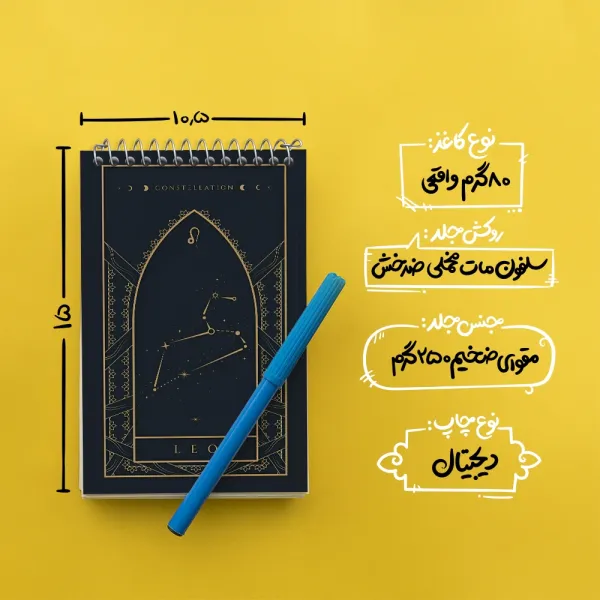 ۱۰٫۵
۱۵
CONSTELLATION
LEO
نوع کاغذ:
۸۰گرم واقعی
روکش جلد:
سلفون مات مخملی ضدخش
جنس جلد:
مقوای ضخیم ۲۵۰گرم
نوع چاپ:
دیجیتال